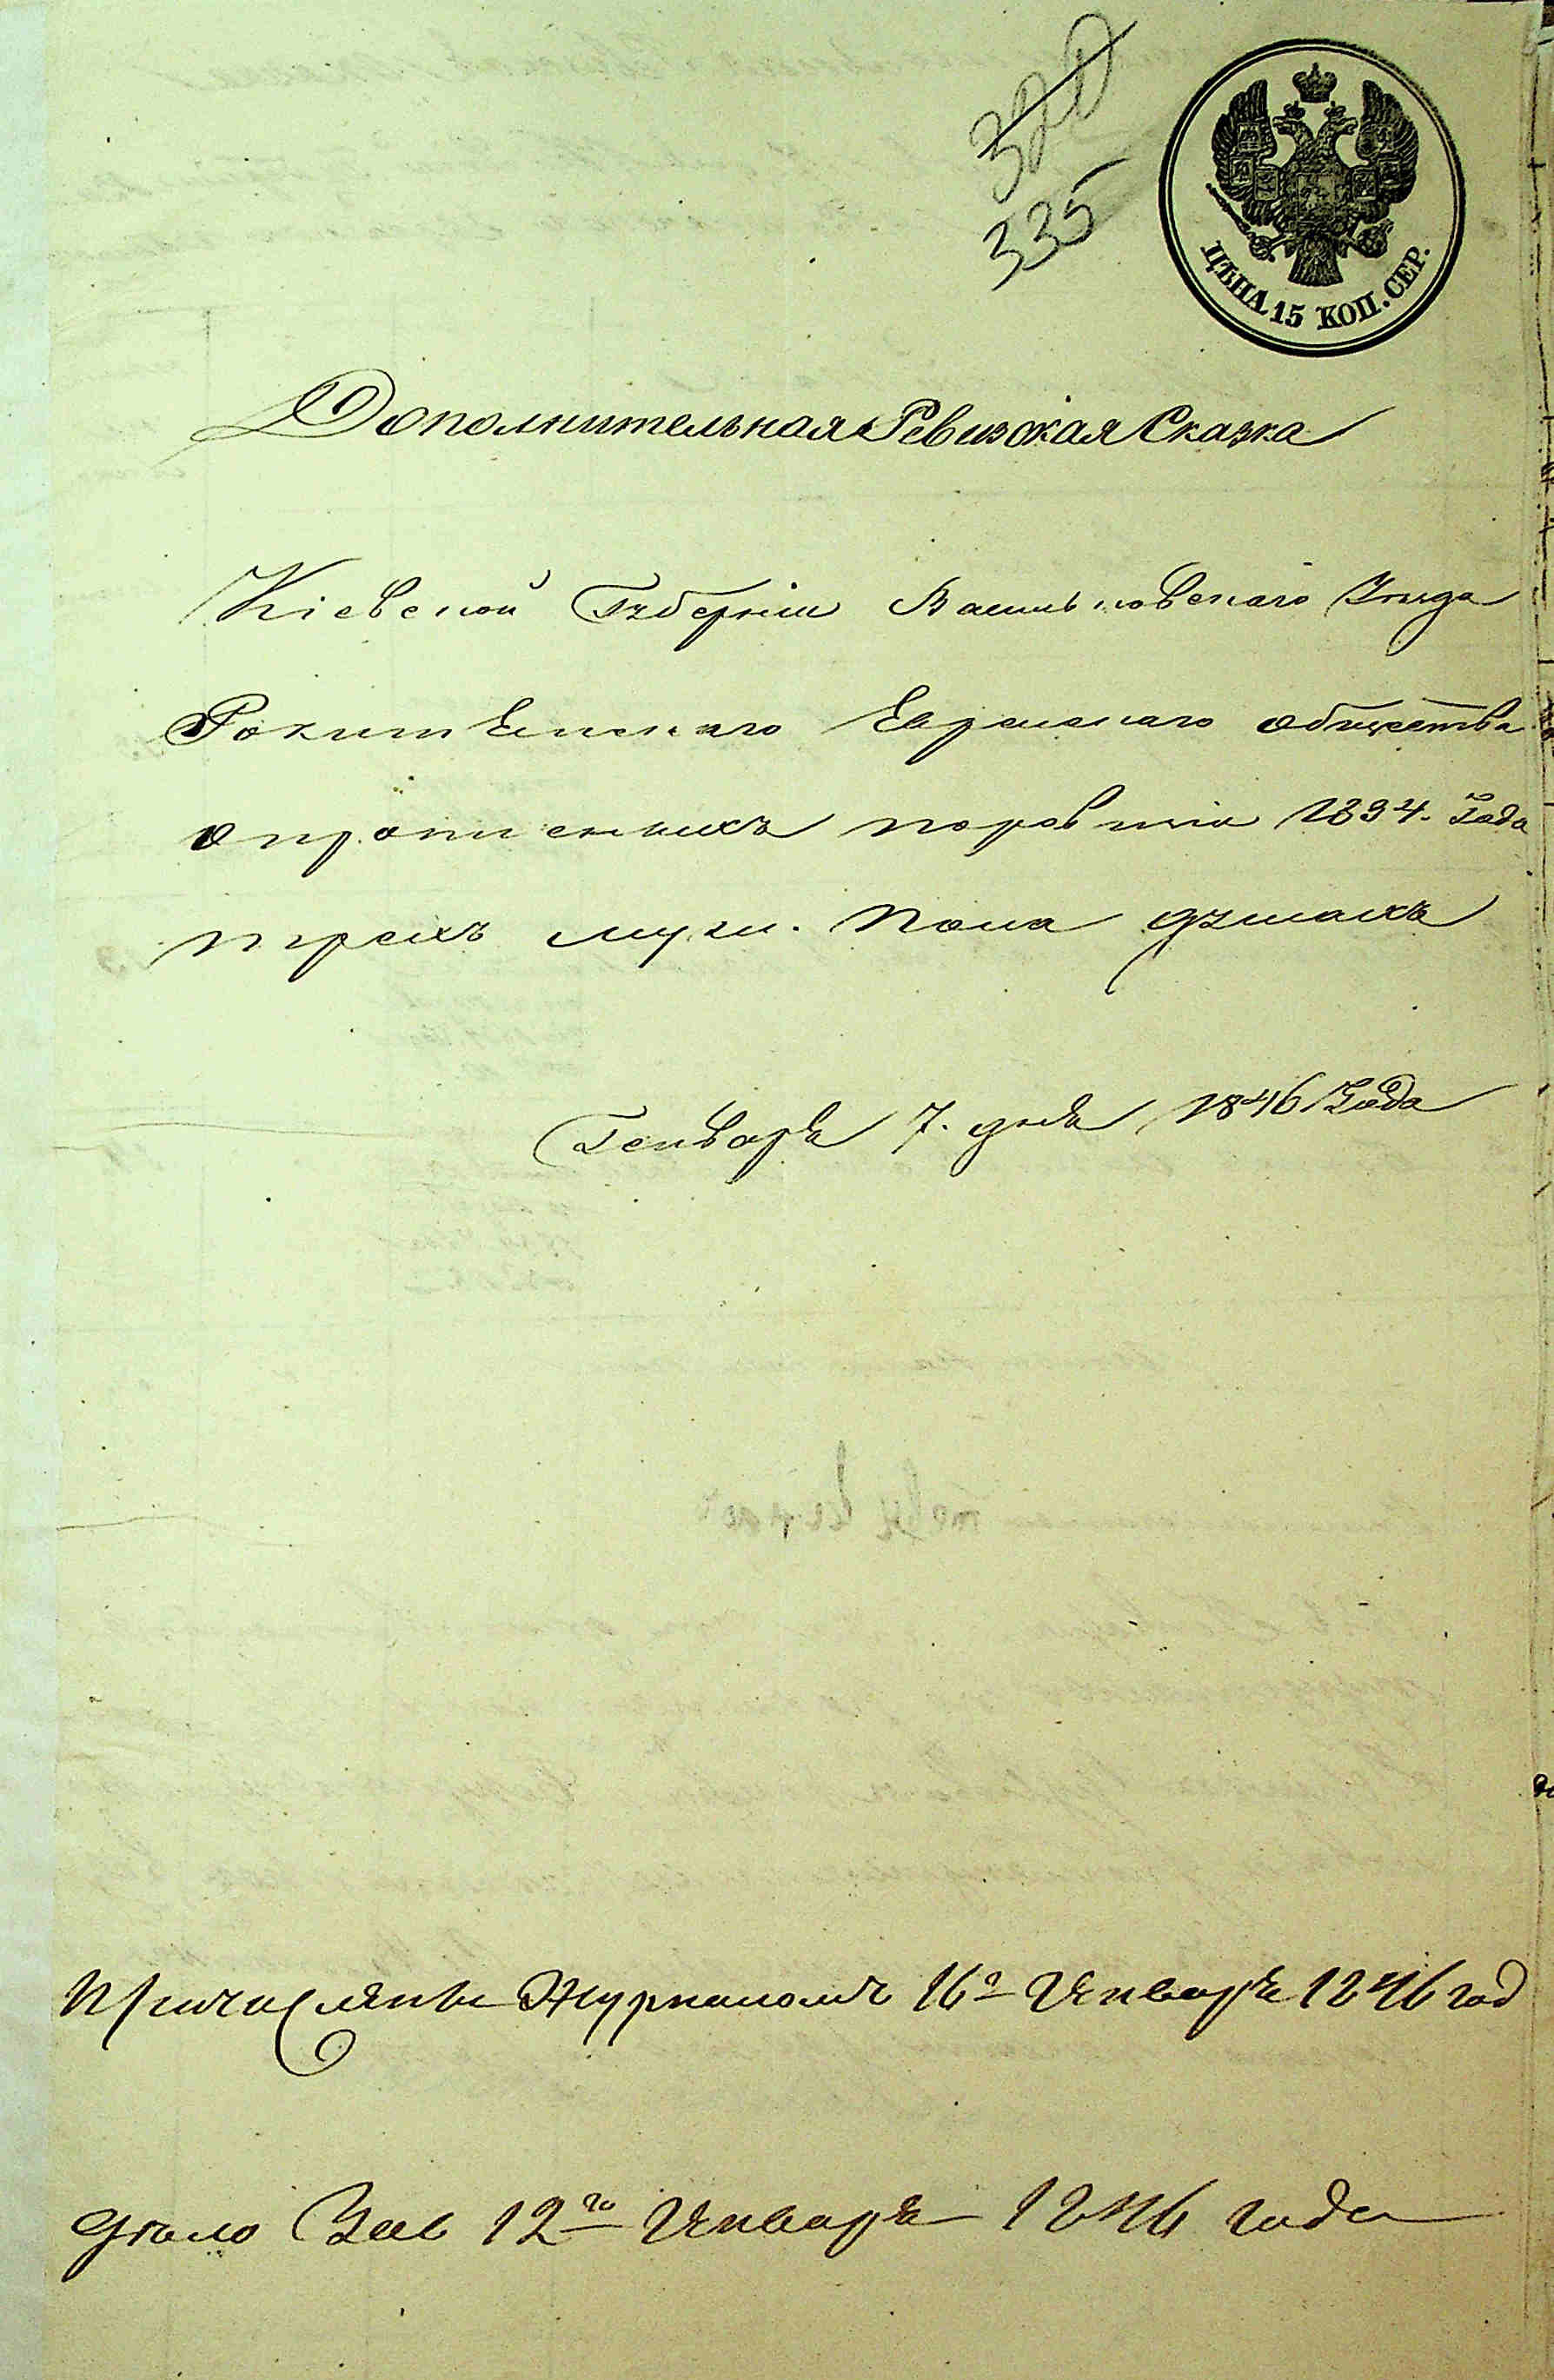 320
335
ЦѢНА 15 КОП. СЕР.
Дополнительная Ревизская Сказка
Кіевской Губерніи Васильковскаго Уѣзда
Рокитянскаго Еврейскаго общества
опрописныхъ 1834. Года
трехъ муж. пола душахъ
Генваря 7. дня 1846 Года
Причислены Журналомъ 16 Января 1846 год
Дѣло 12го Января 1846 года